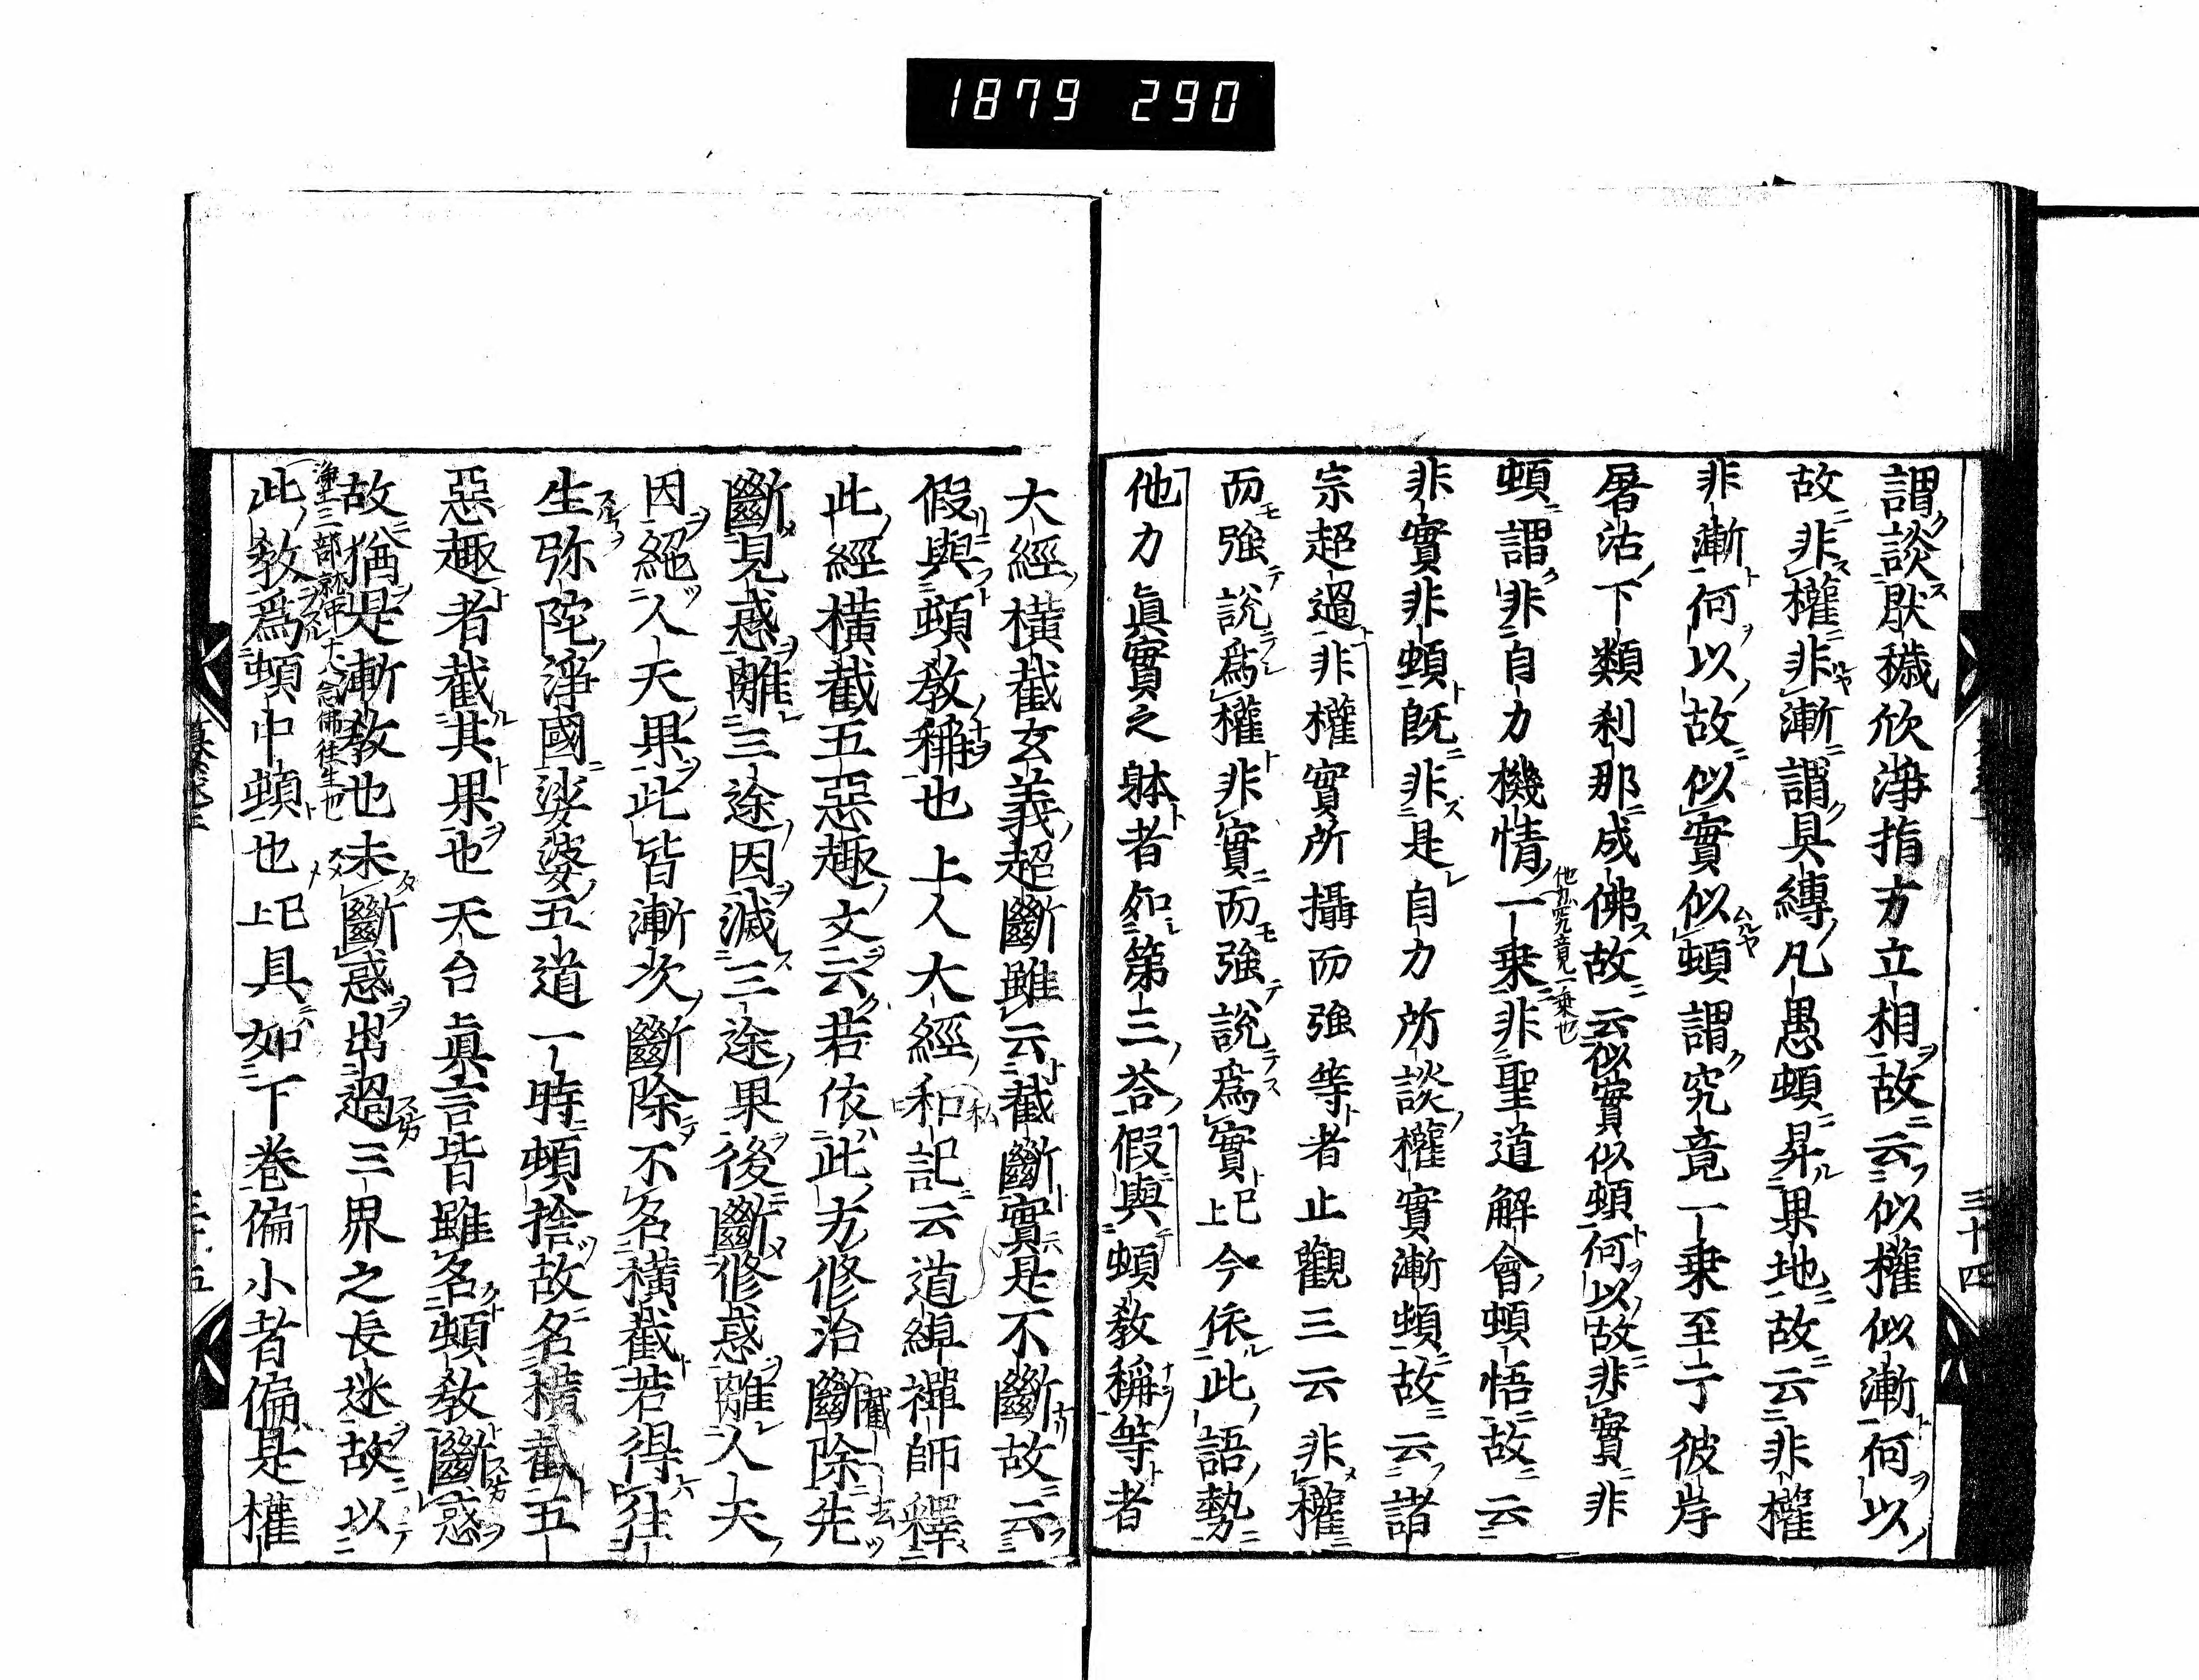 1879 290
謂談厭穢欣淨指方立相故云似權似漸何以
故非權非漸謂具縛凡愚頓昇果地故云非權
非漸何以故似實似頓謂究竟一乗至于彼岸
屠沽下類利那成佛故云似實似頓何以故非實非
頓謂非自力機情一乗非聖道解會頓悟故云
他力究竟一乗也
非實非頓既非是自力所談權實漸頓故云諸
宗超過非權實所攝而強等者止觀三云非權
而強說爲權非實而強說爲實上已今依此語勢
他力眞實之躰者如第三荅假與頓敎稱等者
三十四
大經横截玄義超斷雖云截斷實是不斷故云
假與頓敎稱也上人大經和記云道綽禪師釋
私
此經横截五惡趣文云若依此方修治斷除先
截
去
斷見惑離三途因滅三途果後斷修惑離人天
因絕人天果此皆漸次斷除不名横截若得往
生弥陀淨國娑婆五道一時頓捨故名横截五
惡趣者截其果也天台眞言皆雖名頓敎斷惑
故猶是漸敎也未斷惑出過三界之長迷故以
淨土三部就中大念佛往生也
此敎爲頓中頓也上已具如下巻偏小者偏是權